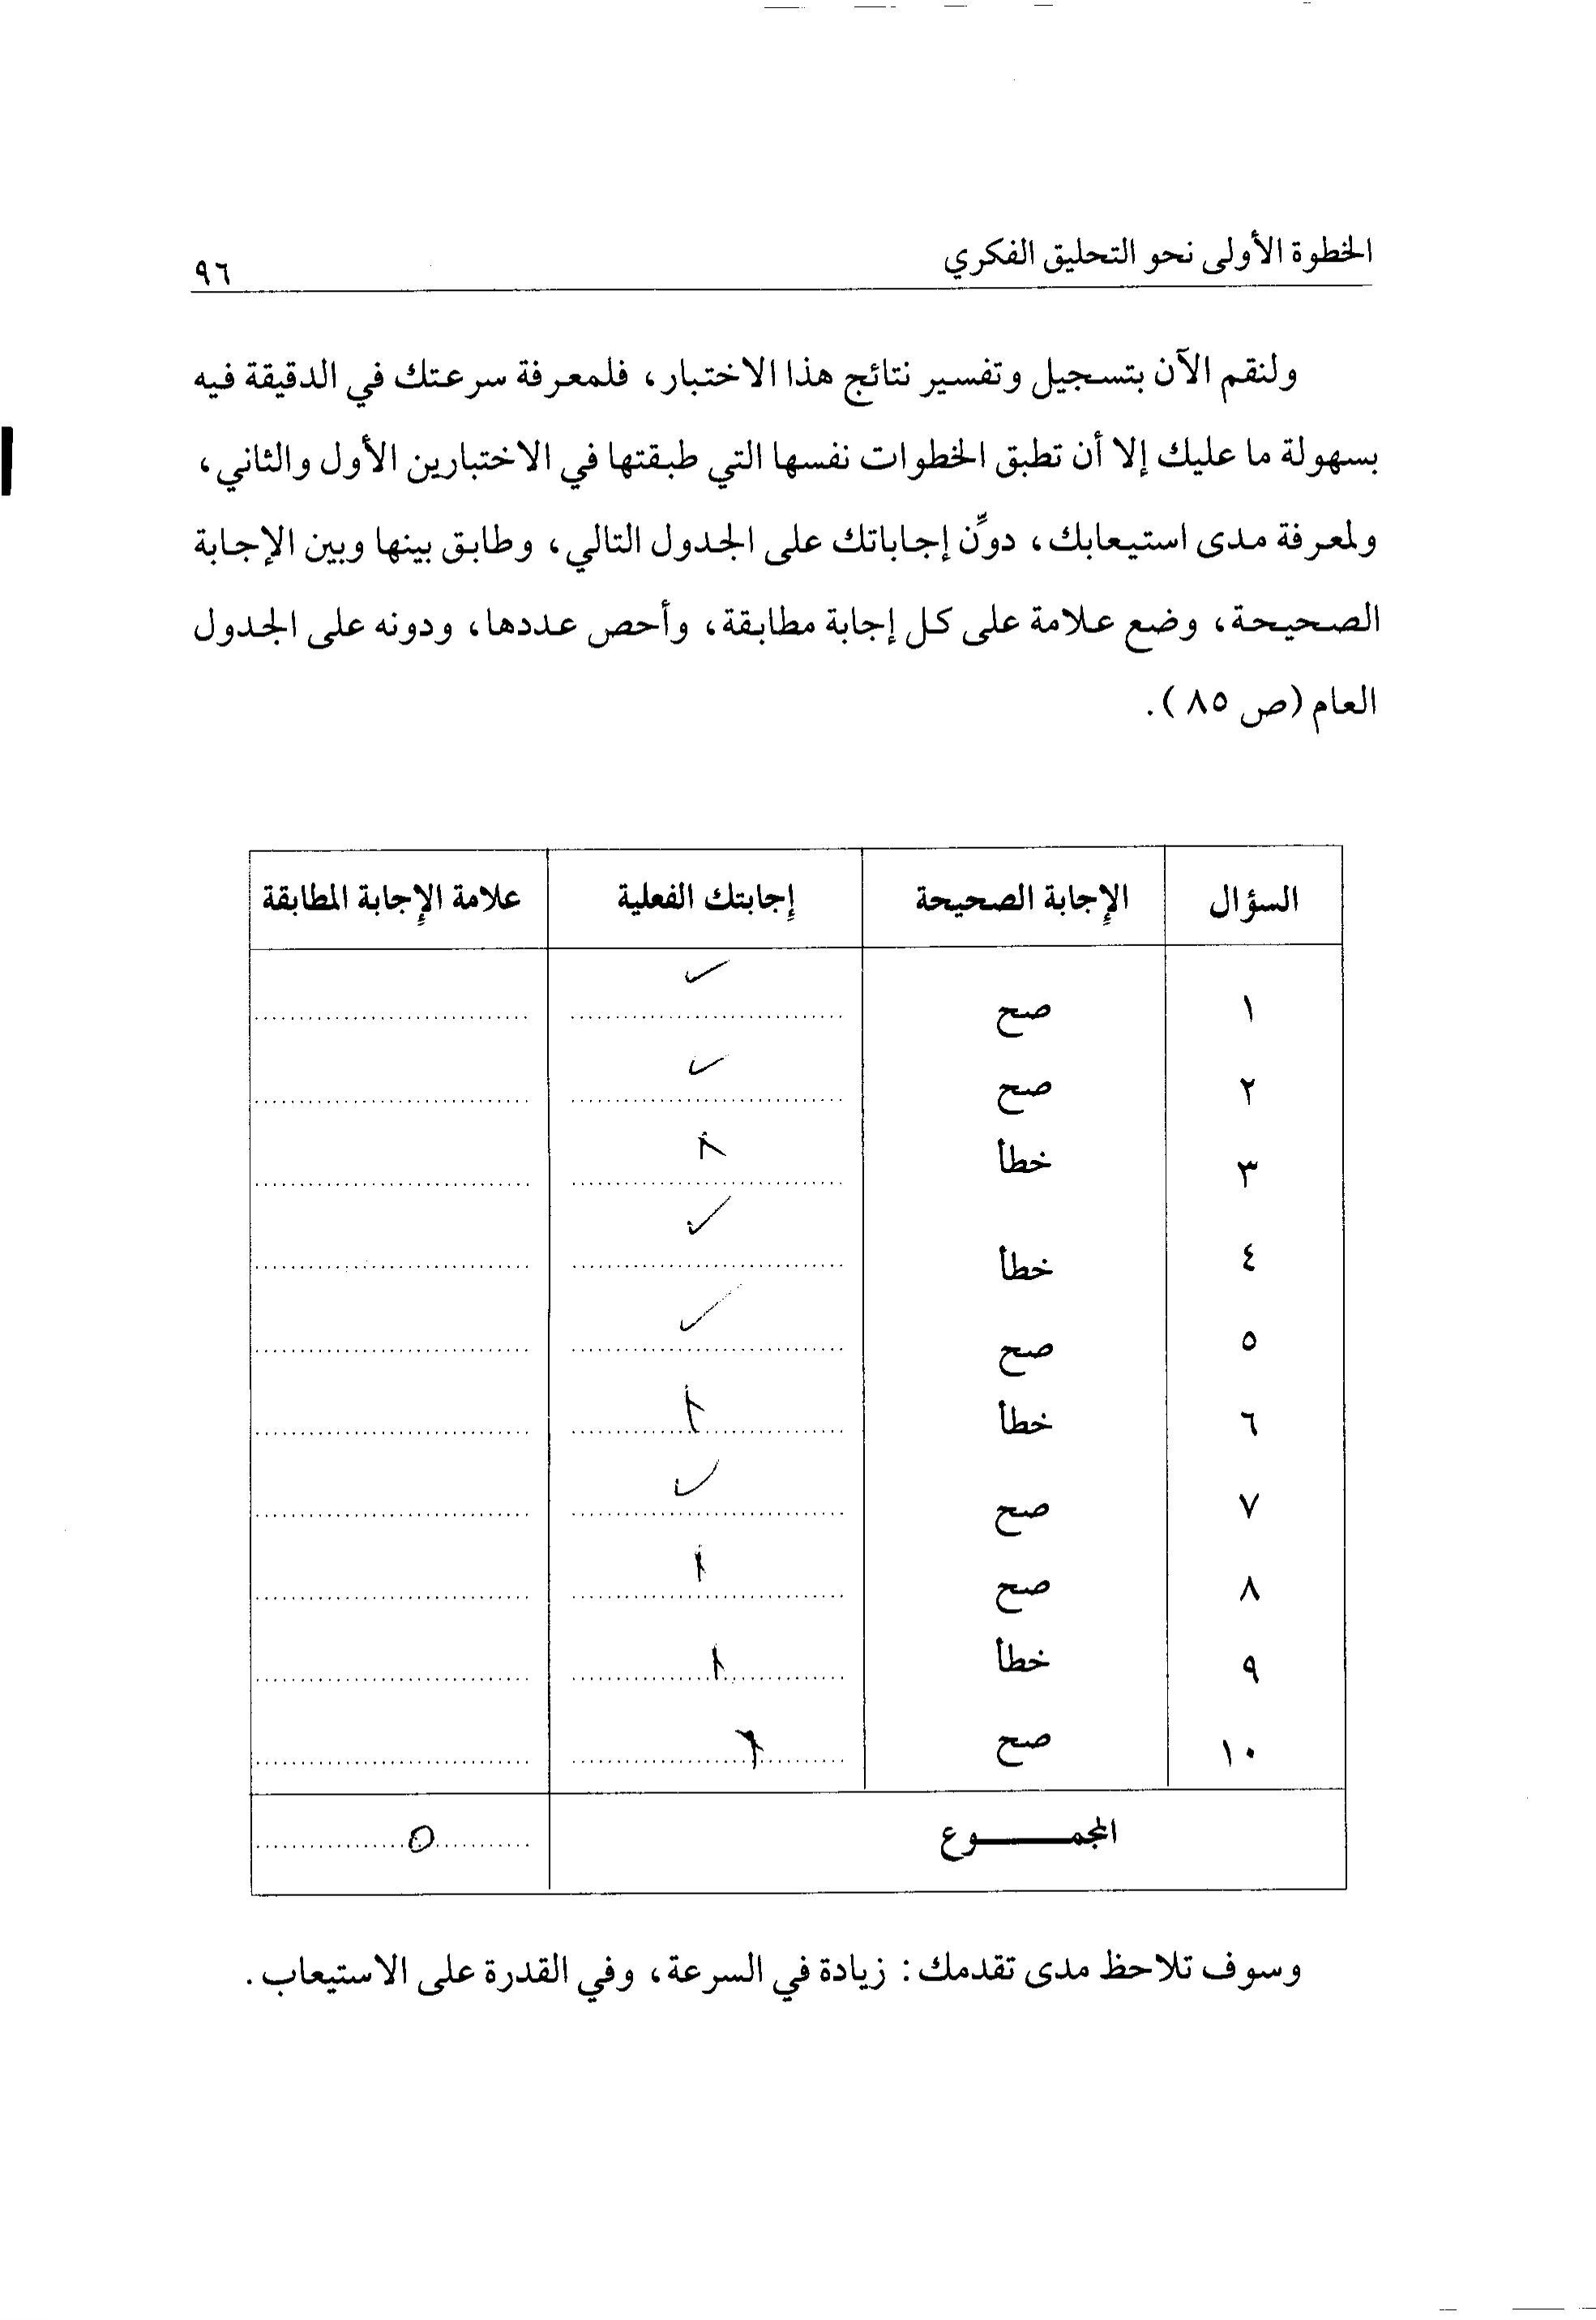 الخطوة الأولى نحو التحليق الفكري
٩٦
ولنقم الآن بتسجيل وتفسير نتائج هذا الاختبار، فلمعرفة سرعتك في الدقيقة فيه
بسهولة ما عليك إلا أن تطبق الخطوات نفسها التي طبقتها في الاختبارين الأول والثاني،
ولمعرفة مدى استيعابك، دوِّن إجاباتك على الجدول التالي، وطابق بينها وبين الإجابة
الصحيحة، وضع علامة على كل إجابة مطابقة، وأحص عددها، ودونه على الجدول
العام (ص ٨٥).
السؤال الإجابة الصحيحة إجابتك الفعلية علامة الإجابة المطابقة
١ صح ✓
٢ صح ✓
٣ خطأ
٤ خطأ ✓
٥ صح ✓
٦ خطأ
٧ صح ✓
٨ صح
٩ خطأ
١٠ صح
المجمـــــوع ٥
وسوف تلاحظ مدى تقدمك: زيادة في السرعة، وفي القدرة على الاستيعاب.